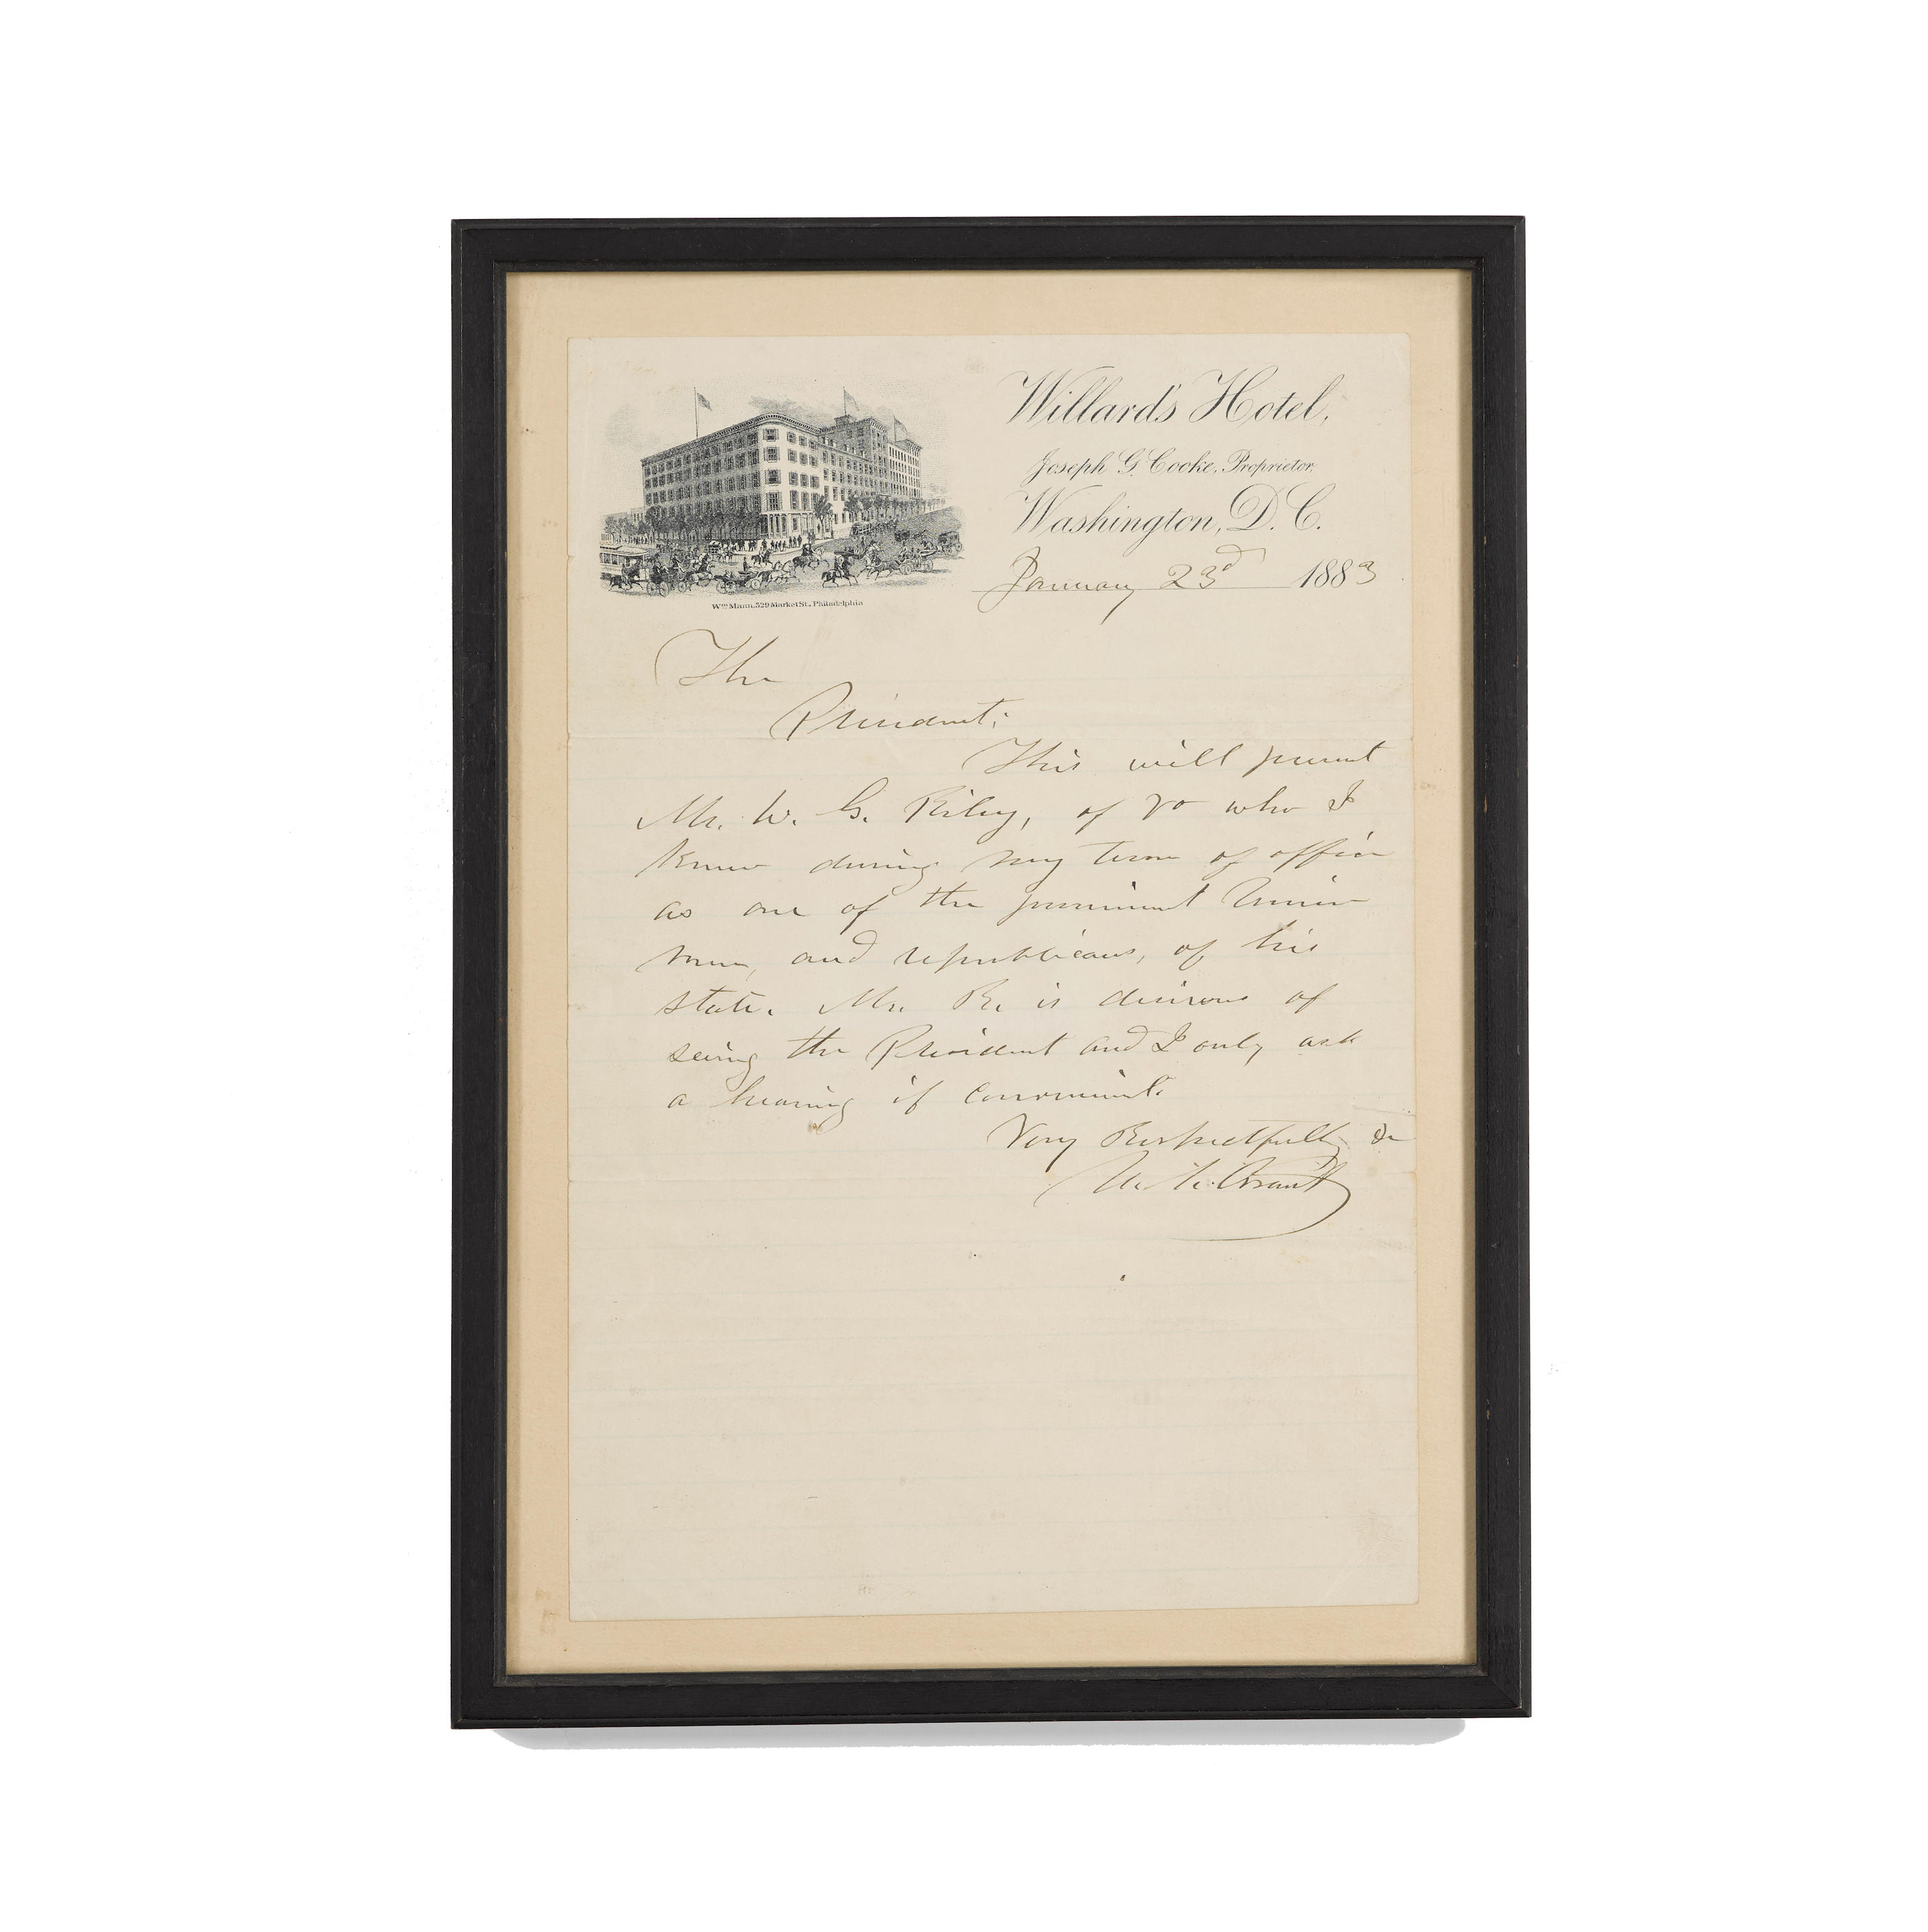 Willard's Hotel,
Joseph G. Cooke, Proprietor,
Washington, D. C.
January 23d 1883
Wm Mann, 529 Market St., Philadelphia
The
President;
This will present
Mr. W. G. Riley, of Va who I
knew during my term of office
as one of the prominent Union
men, and republicans, of his
state. Mr. R. is desirous of
seeing the President and I only ask
a hearing if convenient.
Very Respectfully &c
U. S. Grant